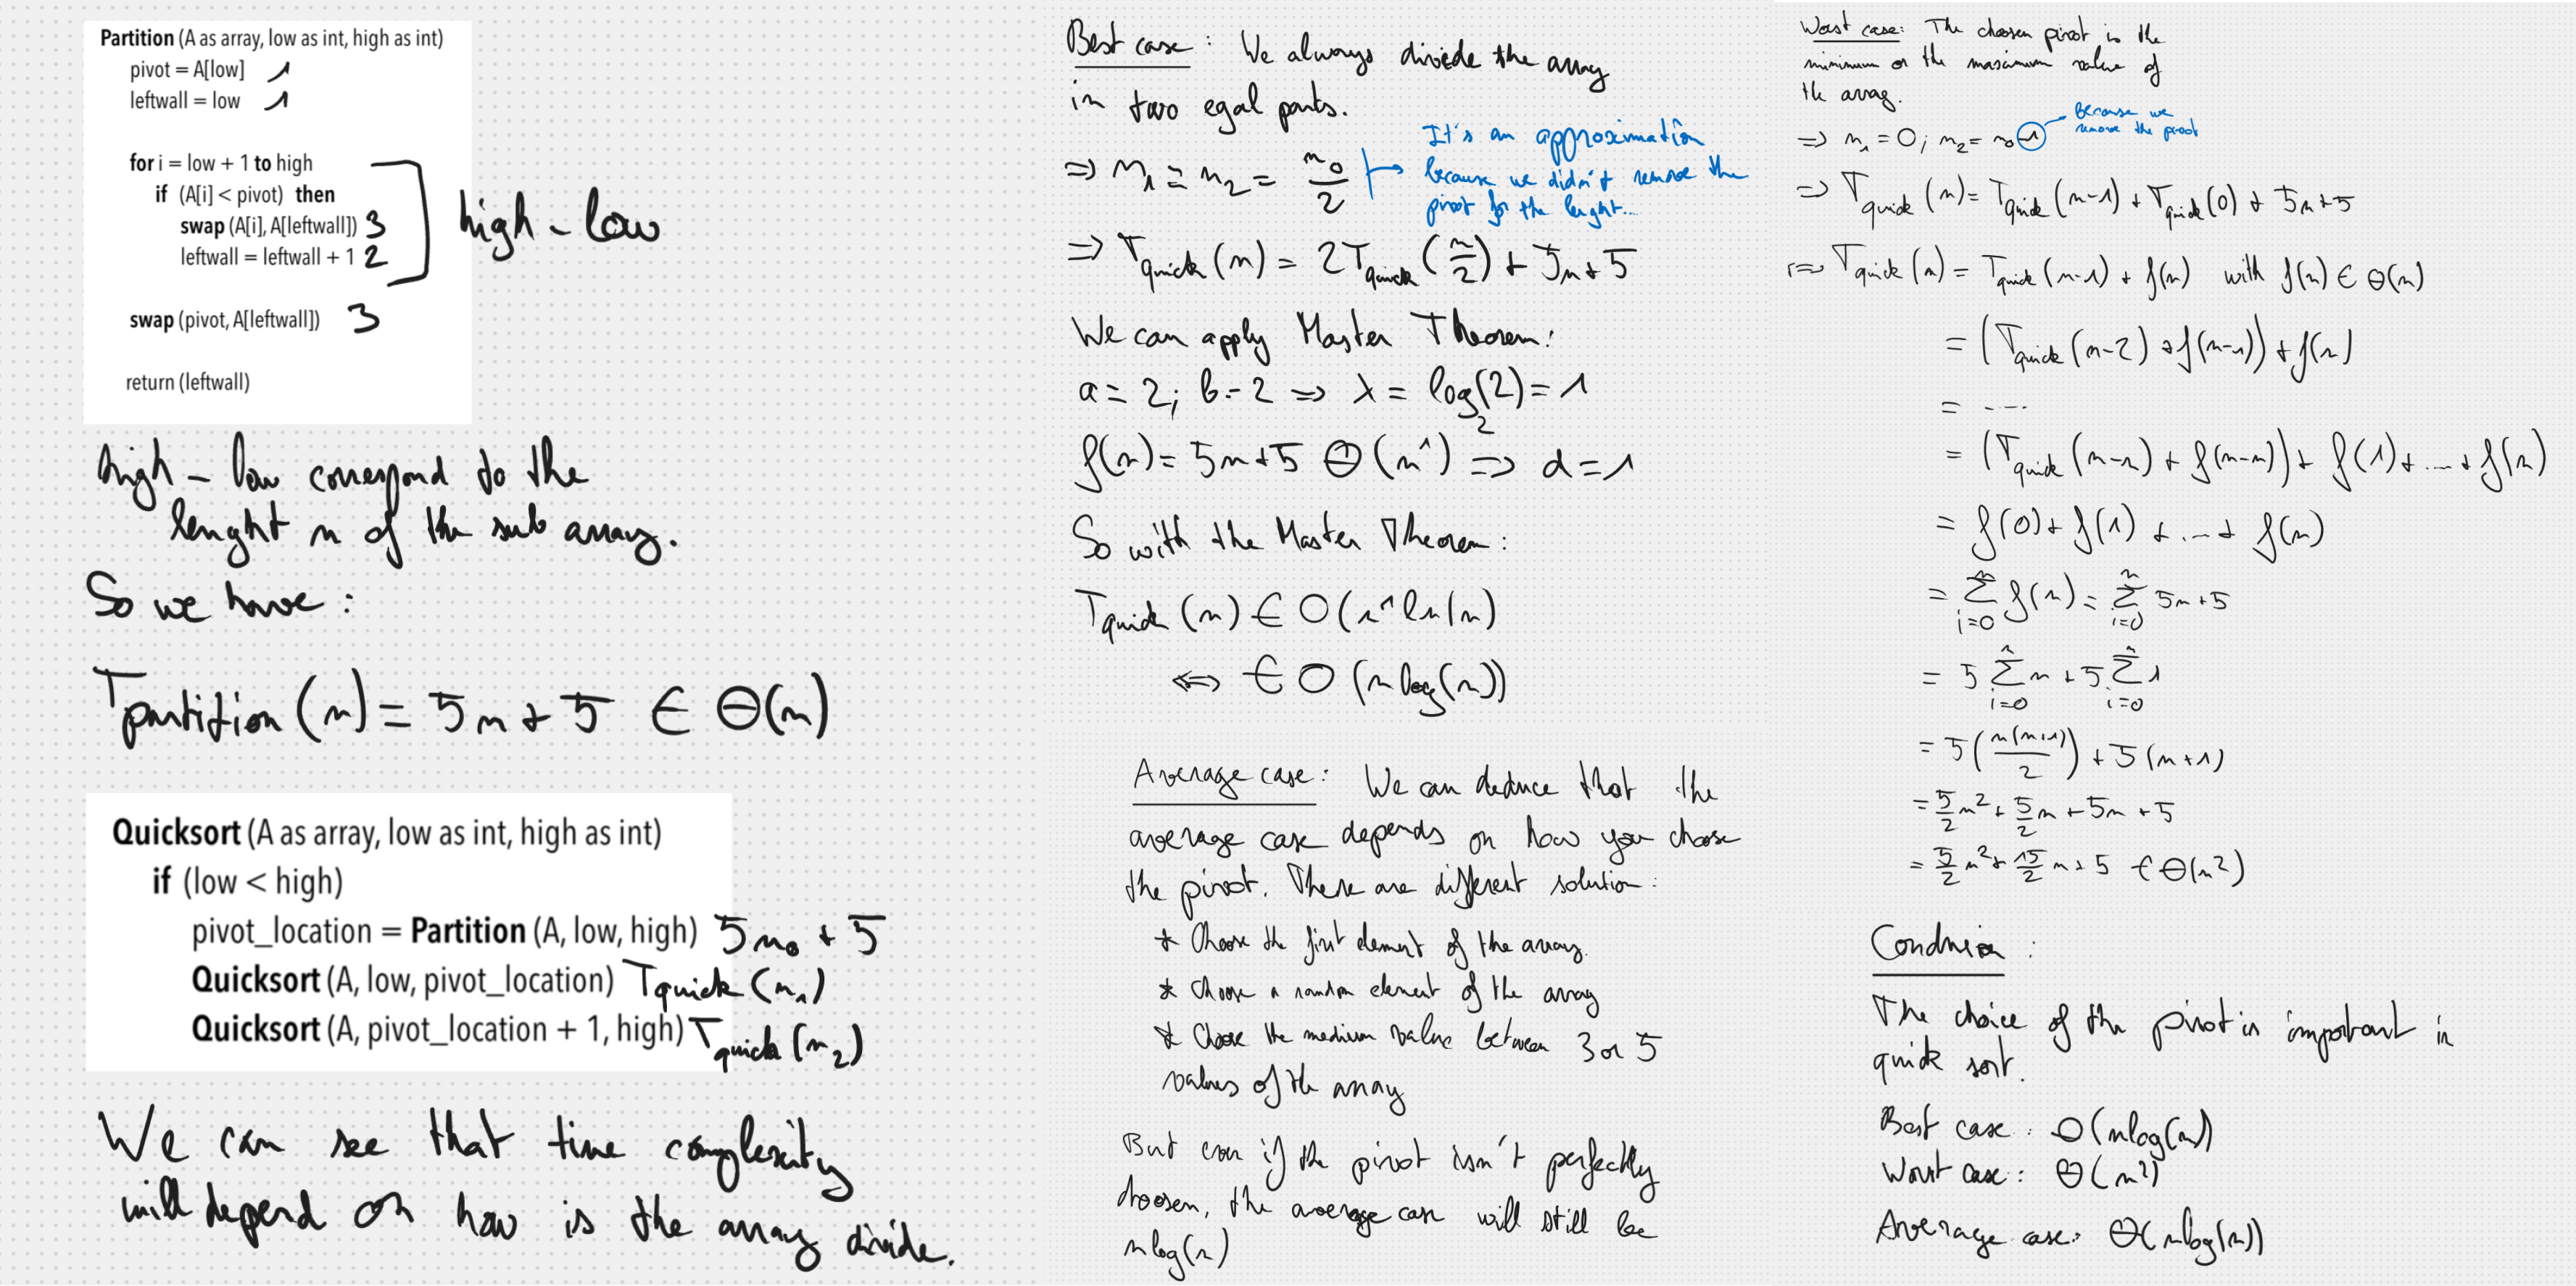 Partition (A as array, low as int, high as int)
pivot = A[low] 1
leftwall = low 1
for i = low + 1 to high
if (A[i] < pivot) then
swap (A[i], A[leftwall]) 3
leftwall = leftwall + 1 2
high - low
swap (pivot, A[leftwall]) 3
return (leftwall)
high - low correspond to the
lenght n of the sub array.
So we have :
Tpartition (n) = 5n + 5 ∈ Θ(n)
Quicksort (A as array, low as int, high as int)
if (low < high)
pivot_location = Partition (A, low, high) 5n₀ + 5
Quicksort (A, low, pivot_location) Tquick (n₁)
Quicksort (A, pivot_location + 1, high) Tquick (n₂)
We can see that time complexity
will depend on how is the array divide.
Best case : We always divide the array
in two egal parts.
=> n₁ ≅ n₂ = n₀/2
It's an approximation
because we didn't remove the
pivot for the lenght...
=> Tquick (n) = 2Tquick (n/2) + 5n + 5
We can apply Master Theorem:
a = 2; b = 2 => λ = log₂(2) = 1
f(n) = 5n + 5 Θ(n¹) => d = 1
So with the Master Theorem :
Tquick (n) ∈ O(n¹ ln(n)
<=> ∈ O (n log(n))
Average case : We can deduce that the
average case depends on how you choose
the pivot. There are different solution :
* Choose the first element of the array.
* Choose a random element of the array
* Choose the medium value between 3 or 5
values of the array
But even if the pivot isn't perfectly
choosen, the average case will still be
n log(n)
Worst case : The choosen pivot is the
minimum or the maximum value of
the array.
=> n₁ = 0 ; n₂ = n₀ - 1
because we
remove the pivot
=> Tquick (n) = Tquick (n-1) + Tquick (0) + 5n + 5
<=> Tquick (n) = Tquick (n-1) + f(n) with f(n) ∈ Θ(n)
= (Tquick (n-2) + f(n-1)) + f(n)
= ....
= (Tquick (n-n) + f(n-n)) + f(1) + ... + f(n)
= f(0) + f(1) + ... + f(n)
= Σⁿᵢ₌₀ f(n) = Σⁿᵢ₌₀ 5n + 5
= 5 Σⁿᵢ₌₀ n + 5 Σⁿᵢ₌₀ 1
= 5 (n(n+1)/2) + 5 (n+1)
= 5/2 n² + 5/2 n + 5n + 5
= 5/2 n² + 15/2 n + 5 ∈ Θ(n²)
Conclusion :
The choice of the pivot is important in
quick sort.
Best case : O(n log(n))
Worst case : Θ(n²)
Average case : Θ(n log(n))